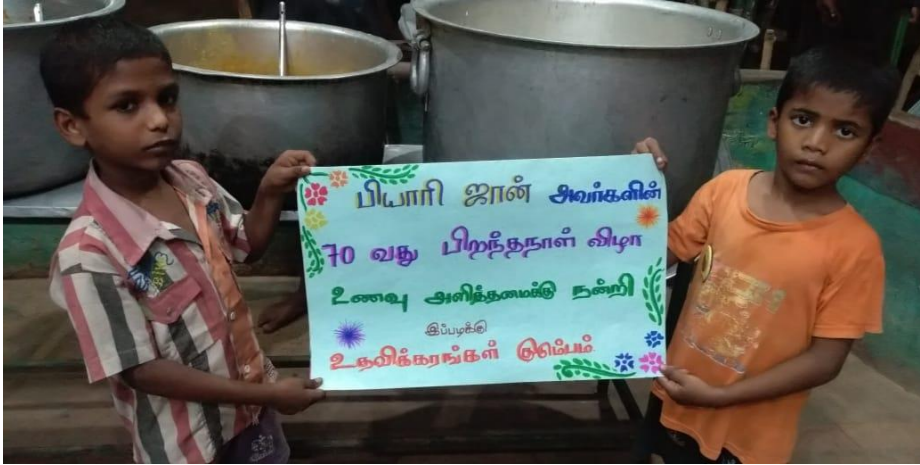 பியாரி ஜான் அவர்களின்
70 வது பிறந்தநாள் விழா
உணவு அளித்தமைக்கு நன்றி
இப்படிக்கு
உதவிக்கரங்கள் குடும்பம்